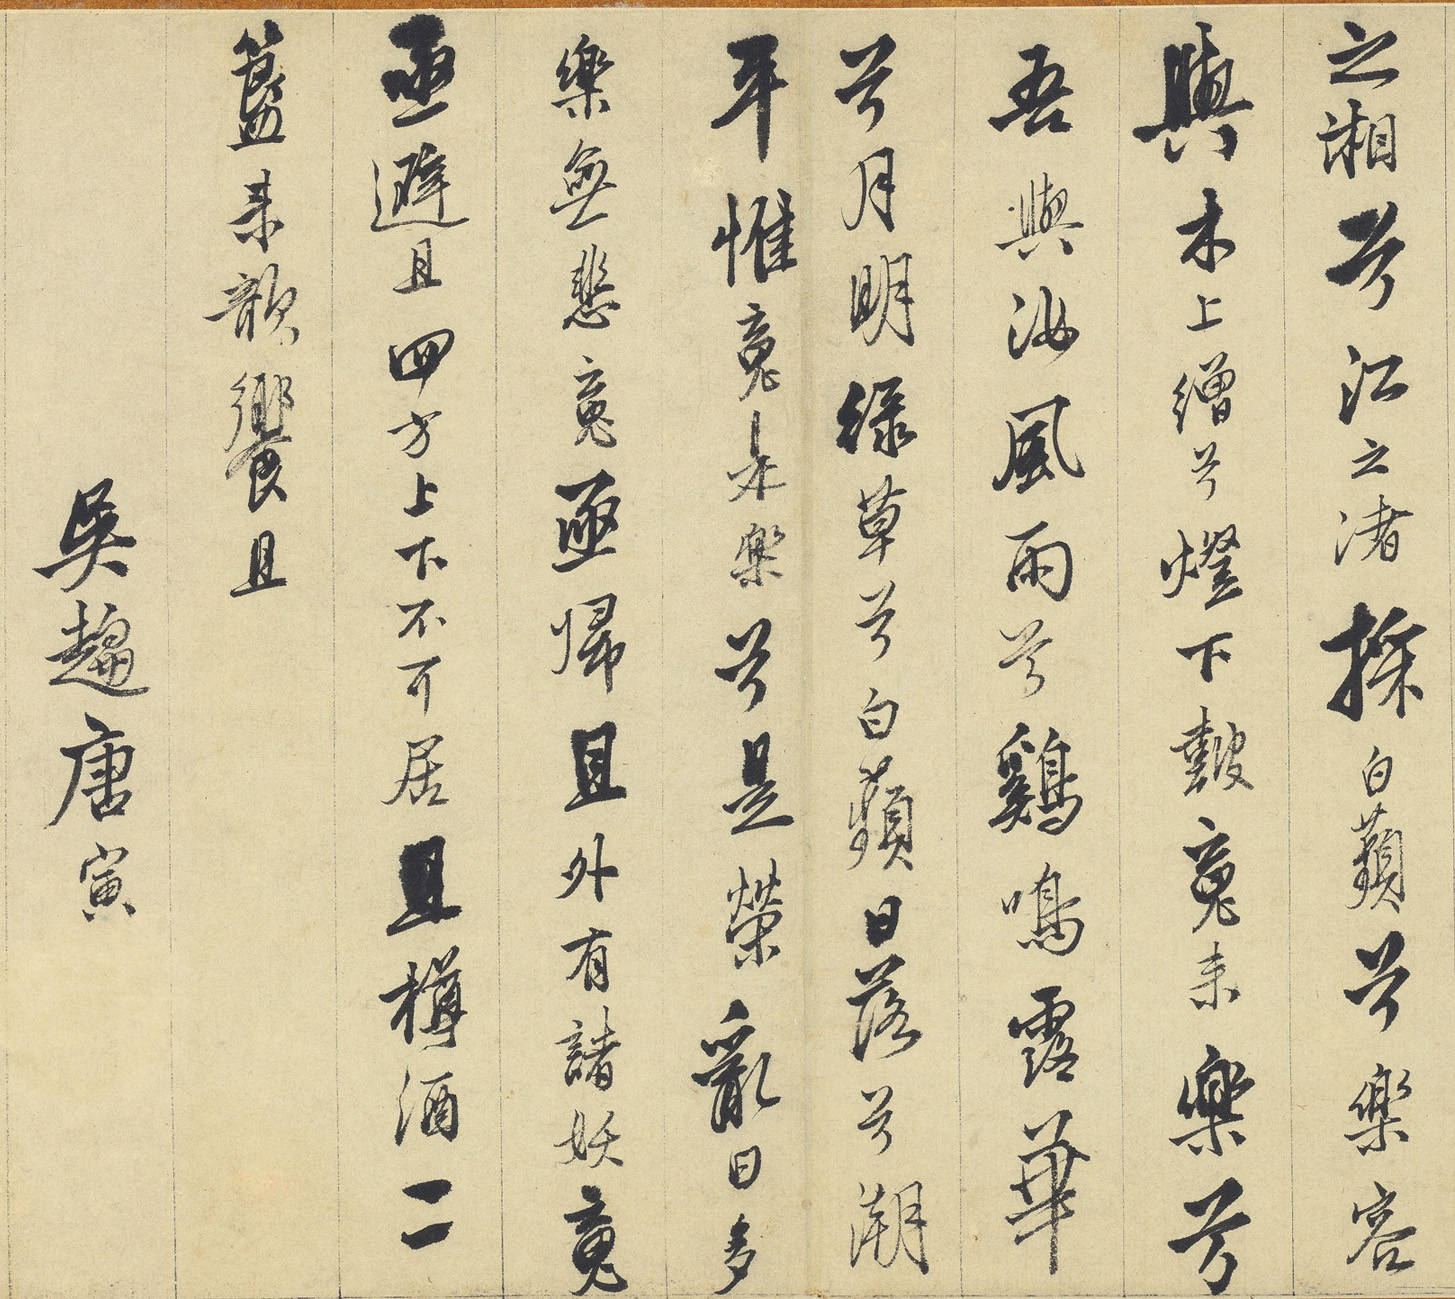 之湘兮江之渚採白蘋兮樂容
與木上繒兮燈下鼓魂來樂兮
吾與汝風雨兮鷄鳴露華
兮月明綠草兮白蘋日落兮潮
平惟魂來樂兮是榮亂曰多
樂無悲魂亟歸且外有諸妖魂
亟避且四方上下不可居且樽酒二
簋來歆饗且
吳趨唐寅